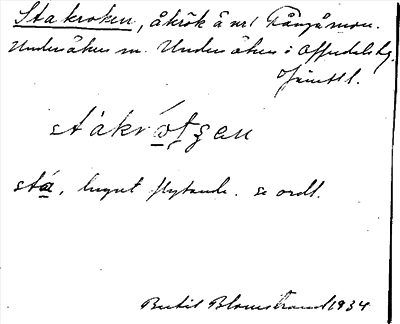 Stakroken, åkrök å nr 1 Fångåmon.
Undersåker sn. Undersåker i Offerdals tg.
Jämtl.
stákrótʒen
stá, lugnt flytande. se ordl.
Bertil Blomstrand 1934